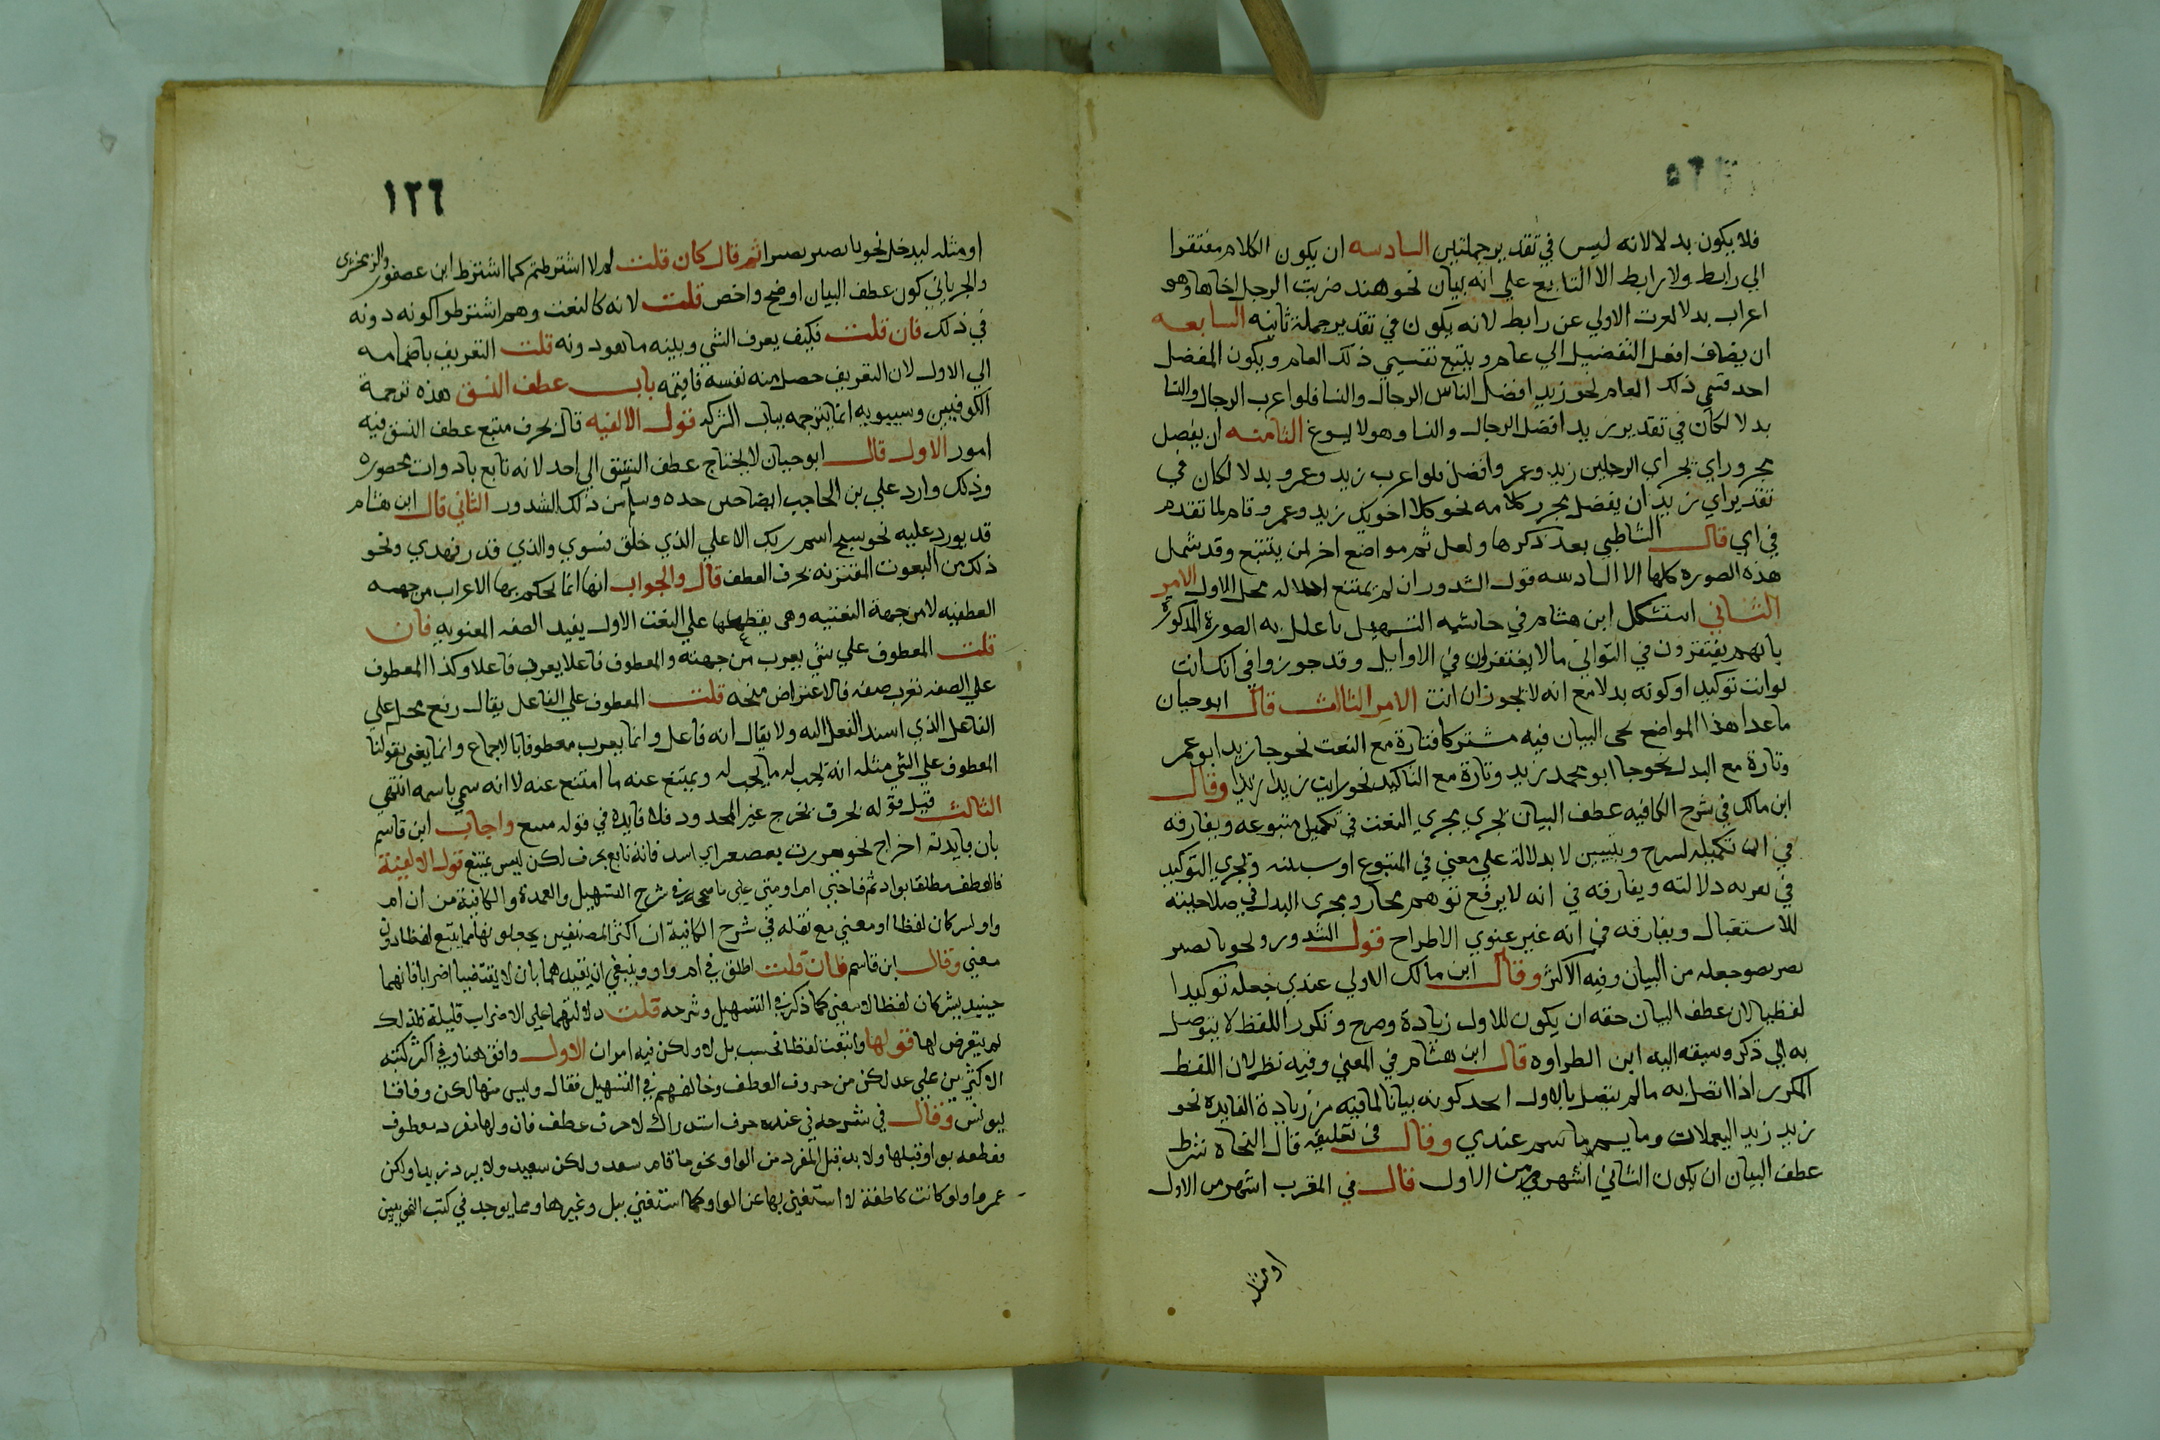 فلا يكون بدلا لانه ليس في تقدير جملتين السادسه ان يكون الكلام مفتقرا
الي رابط ولا رابط الا التابع علي انه بيان نحو هند ضربت الرجل اخاها وهو
اعراب بدلا لعرت الاولي عن رابط لانه يكون في تقدير جملة ثانيه السابعه
ان يضاف افعل التفضيل الي عام ويتبع بقسمي ذلك العام ويكون المفضل
احد قسمي ذلك العام نحو زيد افضل الناس الرجال والنسا فلو اعرب الرجال والنسا
بدلا لكان في تقدير زيد افضل الرجال والنسا وهو لا يسوغ الثامنه ان يفصل
مجرور اي نحو اي الرجلين زيد وعمر وافضل فلو اعرب زيد وعمرو بدلا لكان في
تقدير اي زيد ان يفصل مجرر كلا مه نحو كلا اخويك زيد وعمر و قام لما تقدم
في اي قال الشاطبي بعد ذكرها ولعل ثم مواضع اخر لمن يتتبع وقد شمل
هذه الصوره كلها الا السادسه قول الشدور ان لم يمتنع احلاله محل الاول الامر
الثاني استشكل ابن هشام في حاشيه التسهيل ما علل به الصورة المذكورة
بانهم يغتفرون في الثواني ما لا يغتفرون في الاوايل وقد جوزوا في انك انت
كوانت توكيد او كونه بدلا مع انه لا يجوز ان انت الامر الثالث قال ابو حيان
ما عدا هذا المواضع يحى البيان فيه مشتركا فتارة مع النعت نحو جا زيد ابو عمر
وتارة مع البدل نحو جا ابو محمد زيد وتارة مع التاكيد نحو رايت زيدا زيدا وقال
ابن مالك في شرح الكافيه عطف البيان يجري مجري النعت في تكميل متبوعه ويفارقه
في ان تكميله لشرح وتبيين لا بدلالة علي معني في المتبوع او سببه ويجري التوكيد
في تعريه دلالته ويفارقه في انه لا يرفع توهم مجاز ويجري البدل في صلاحيته
للاستقبال ويفارقه في انه غير منوي الاطراح قول الشدور ونحو يا نصر
نصر نصر جعله من البيان وفيه الاكثر وقال ابن مالك الاولي عندي جعله توكيدا
لفظيا لان عطف البيان حقه ان يكون للاول زيادة وضح وتكرر اللفظ لا يتوصل
به الي ذكر وسبقه اليه ابن الطراوه قال ابن هشام في المعني وفيه نظر لان اللفظ
المكرر اذا اتصل به ما لم يتصل بالاول اتجه كونه بيانا لما فيه من زيادة الفايده نحو
زيد زيد اليعملات وما يسم ما سم عندي وقال في تعليقه قال النحاه شرط
عطف البيان ان يكون الثاني اشهر من الاول قال في المغرب اشهر من الاول
او مثله
١٢٦
او مثله ليدخل نحو يا نصر نصر نصرا ثم قال كان قلت لم لا اشترطتم كما اشترط ابن عصفور والزمخشري
والجرجاني كون عطف البيان اوضح واخص قلت لانه كالنعت وهم اشترطوا كونه دونه
في ذلك فان قلت فكيف يعرف الشي ويبينه ما هو دونه قلت التعريف بانضمامه
الي الاول لان التعريف حصل منه نفسه فافهمه باب عطف النسق هذه ترجمة
الكوفيين وسيبويه انما يترجمه بباب الشركه قول الالفيه قال بحرف متبع عطف النسق فيه
امور الاول قال ابو حيان لا يحتاج عطف النسق الي حد لانه تابع بادوات محصوره
وذلك وارد علي بن الحاجب ايضا حين حده وسلم من ذلك الشدور الثاني قال ابن هشام
قد يورد عليه نحو سبح اسم ربك الاعلي الذي خلق فسوي والذي قدر فهدي ونحو
ذلك من النعوت المقترنه بحرف العطف قال والجواب انها انما لحكم بها الاعراب من جهه
العطفيه لا من جهة النعتيه وهي بعطفها علي النعت الاول يفيد الصفه المعنويه فان
قلت المعطوف علي شي يعرب من جهته والمعطوف فاعلا يعرب فاعلا وكذا المعطوف
علي الصفه تعرب صفه فالاعتراض متجه قلت المعطوف علي الفاعل يقال رفع محل علي
الفاعل الذي اسند الفعل اليه ولا يقال انه فاعل وانما يعرب معطوفا بالاجماع وانما يغني بقولنا
المعطوف علي الشي مثله انه يجب له ما يجب له ويمتنع عنه ما امتنع عنه لا انه سمي باسمه انتهي
الثالث قيل قوله بحرف يخرج غير المحدود فلا فايده في قوله متبع واجاب ابن قاسم
بان فايدته اخراج نحو مررت بغضنفر اي اسد فانه تابع بحرف لكن ليس بمتبع قول الالفية
فالعطف مطلقا بواو ثم فا حتي ام او متي علي ما صححه في شرح التسهيل والعمدة والكافية من ان ام
واو يشركان لفظا او معني مع نقله في شرح الكافية ان اكثر المصنفين يجعلونها مما يتبع لفظا دون
معني وقال ابن قاسم فان قلت اطلق في ام واو وينبغي ان يقيدهما بان لا يقتضيا اضرابا فانهما
حينيد يشركان لفظا لا معني كما ذكر في التسهيل وشرحه قلت دلالتهما علي الاضراب قليلة فلذلك
لم يتعرض لها قولها واتبعت لفظا فحسب بل ولا ولكن فيه امران الاول وافق هنا وفي اكثر كتبه
الاكثرين علي عد لكن من حروف العطف وخالفهم في التسهيل فقال وليس منها لكن وفاقا
ليونس وقال في شرحه في عنده حرف استدراك لا حرف عطف فان ولها مفرد معطوف
فعطفه بواو قبلها ولا بد قبل المفرد من الواو نحو ما قام سعد ولكن سعيد ولا يرد زيدا ولكن
عمرا ولو كانت عاطفة لاستغني بها عن الواو كما استغني ببل وغيرها وما يوجد في كتب النحويين